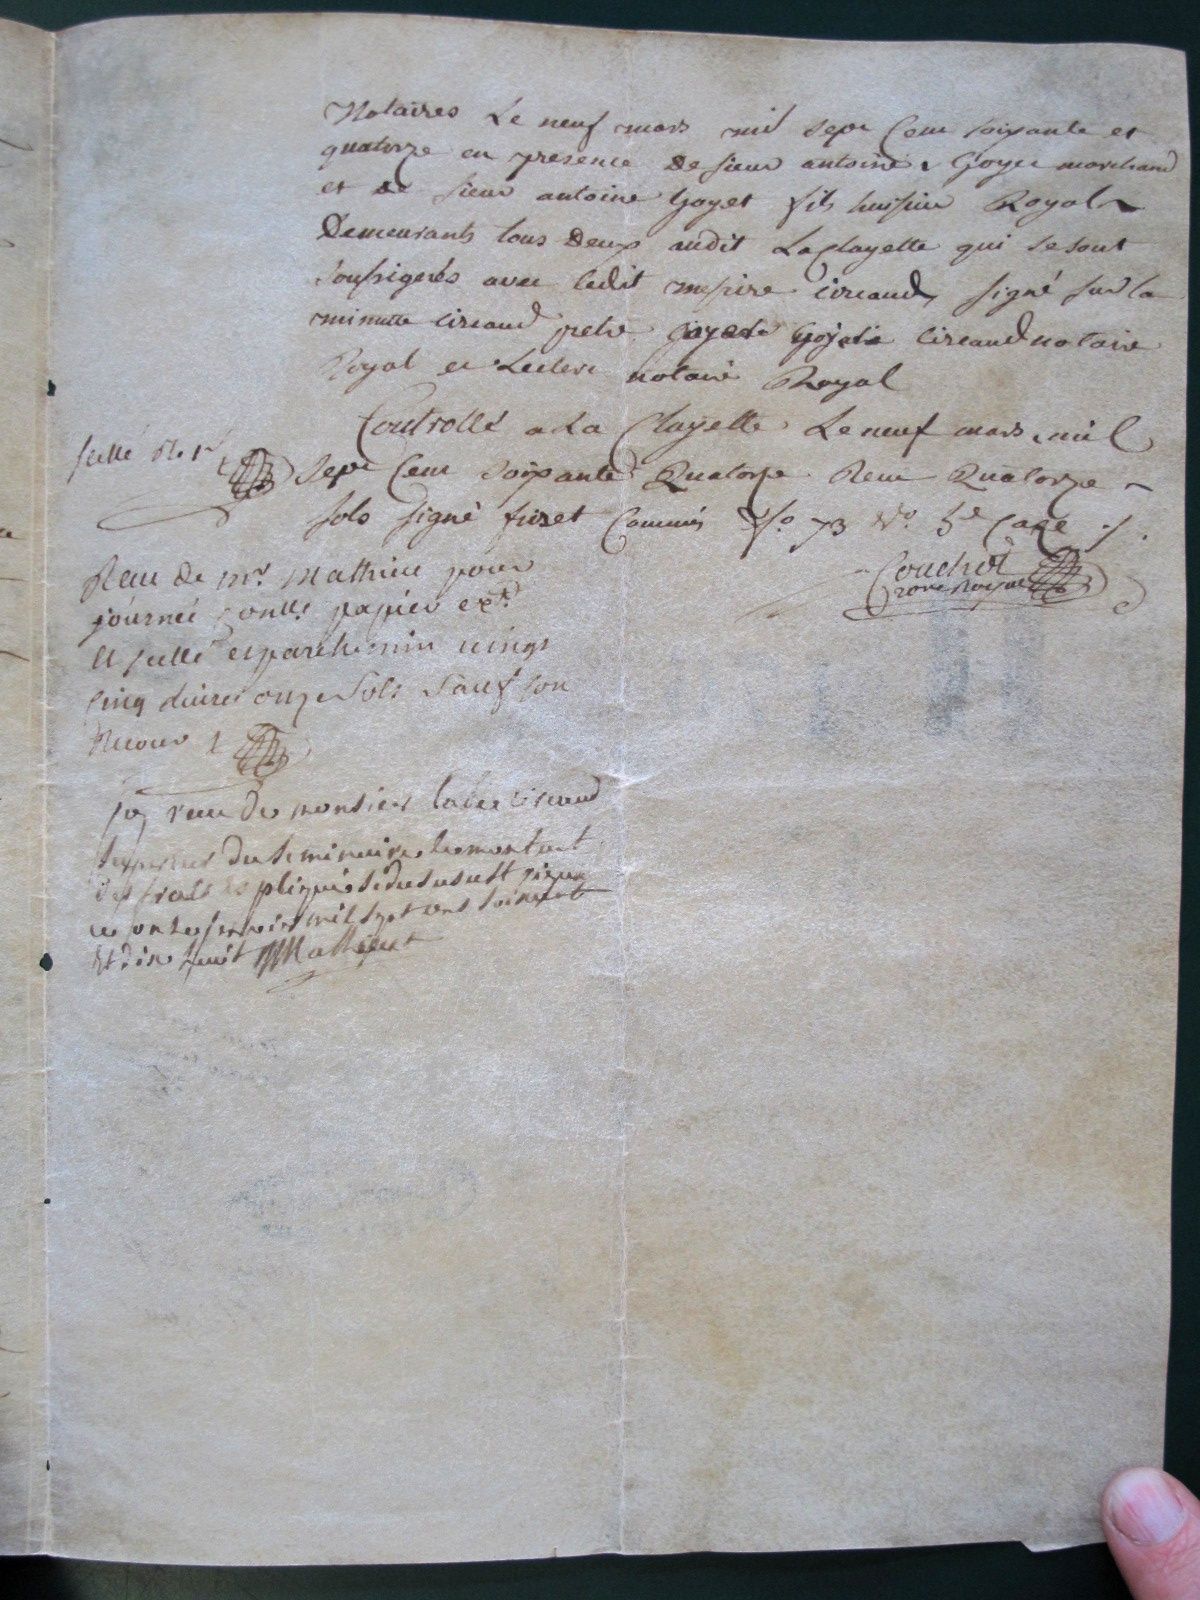 Notaires Le neuf mars mil sept Cent soixante et
quatorze en presence de sieur antoine Goyet marchand
et de sieur antoine Goyet fils huissier Royal
Demeurants tous deux audit La Clayette qui se sont
soussignés avec ledit messire circaud, signé sur la
minutte circaud petre Goyet Goyet circaud notaire
Royal et Leclerc notaire Royal
Controllé a La Clayette Le neuf mars mil
sept Cent soixante Quatorze Recu Quatorze
sols signé furet Commis fo. 73 vo. 5e Case ./.
scellé
Couchot
Royal
Recu de mr. Mathieu pour
journée papier
et scellé et parchemin vingt
cinq livres onze sols sauf son
Recour
jay recu de monsieur labbé circaud
superieur du seminaire le montant
des frais expliqués
ce onze mil sept cent soixante
et dix huit Mathieu